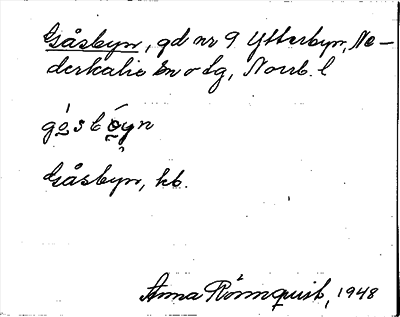 Gåsbyn, gd nr 9 Ytterbyn, Ne-
derkalix sn o tg, Norrb. l
gåsbøyn
Gåsbyn, kb.
Anna Rönnquist, 1948